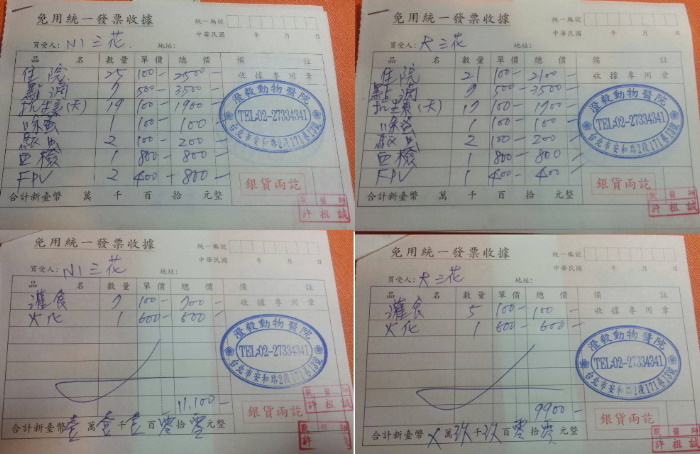 免用統一發票收據
統一編號
中華民國 年 月 日
買受人: N1三花 地址:
品 名 數量 單價 總價 備 註
住院 25 100- 2500-
點滴 7 500- 3500-
抗生素(大) 19 100- 1900-
除蚤 1 100- 100-
驅蟲 2 100- 200-
血檢 1 800- 800-
FPV 2 400- 800-
收據專用章
澄毅動物醫院
TEL:02-27334341
台北市安和路2段171巷13號
銀貨兩訖
獸醫師
許祖誠
合計新臺幣 萬 千 百 拾 元整
免用統一發票收據
統一編號
中華民國 年 月 日
買受人: 大三花 地址:
品 名 數量 單價 總價 備 註
住院 21 100- 2100-
點滴 7 500- 3500-
抗生素(大) 19 100- 1900-
除蚤 1 100- 100-
驅蟲 2 100- 200-
血檢 1 800- 800-
FPV 1 400- 400-
收據專用章
澄毅動物醫院
TEL:02-27334341
台北市安和路2段171巷13號
銀貨兩訖
獸醫師
許祖誠
合計新臺幣 萬 千 百 拾 元整
免用統一發票收據
統一編號
中華民國 年 月 日
買受人: N1三花 地址:
品 名 數量 單價 總價 備 註
灌食 7 100- 700-
火化 1 600- 600-
11,100-
收據專用章
澄毅動物醫院
TEL:02-27334341
台北市安和路2段171巷13號
銀貨兩訖
許祖
合計新臺幣 壹 萬 壹 千 壹 百 零 拾 零 元整
免用統一發票收據
統一編號
中華民國 年 月 日
買受人: 大三花 地址:
品 名 數量 單價 總價 備 註
灌食 5 100- 100-
火化 1 600- 600-
9900-
收據專用章
澄毅動物醫院
TEL:02-27334341
台北市安和路2段171巷13號
銀貨兩訖
獸醫師
許祖
合計新臺幣 X 萬 玖 千 玖 百 零 拾 零 元整